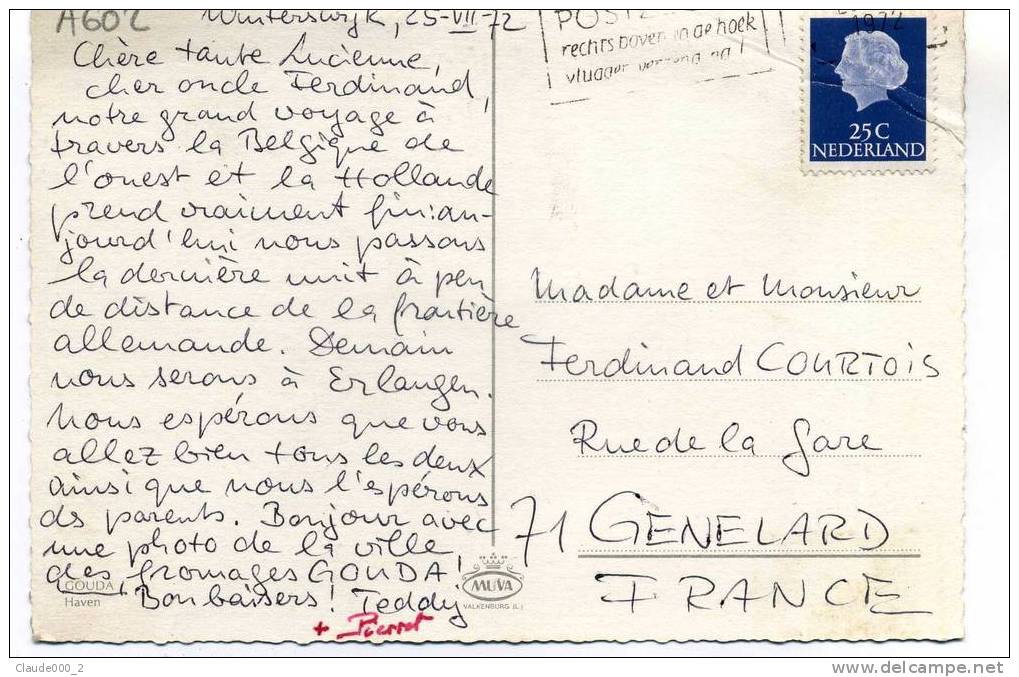 A602
Winterswijk, 25-VII-72
Chère tante Lucienne,
cher oncle Ferdinand,
notre grand voyage à
travers la Belgique de
l'ouest et la Hollande
prend vraiment fin: au-
jourd'hui nous passons
la dernière nuit à peu
de distance de la frontière
allemande. Demain
nous serons à Erlangen.
Nous espérons que vous
allez bien tous les deux
ainsi que nous l'espérons
des parents. Bonjour avec
une photo de la ville
des fromages GOUDA!
Bonbaisers! Teddy
+ Pierret
GOUDA
Haven
MUVA
VALKENBURG (L.)
POSTZ
rechts boven in de hoek
vlugger
1972
25C
NEDERLAND
Madame et Monsieur
Ferdinand COURTOIS
Rue de la Gare
71 GENELARD
FRANCE
Claude000_2
delcampe.net